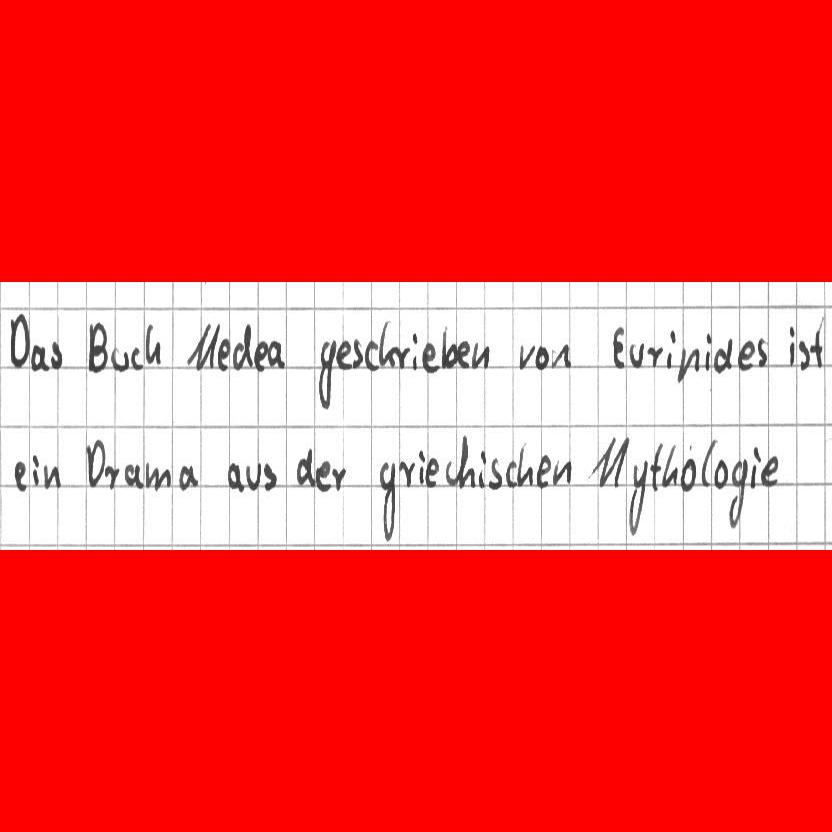 Das Buch Medea geschrieben von Euripides ist
ein Drama aus der griechischen Mythologie